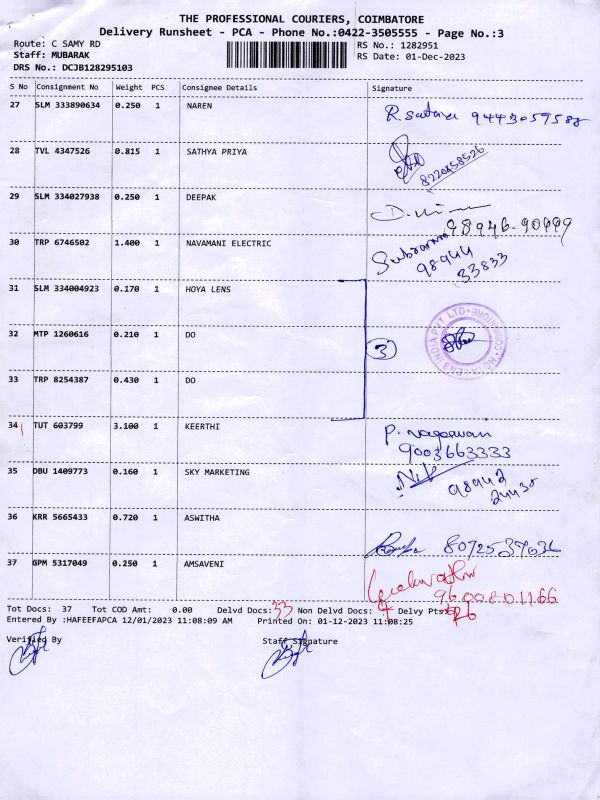 THE PROFESSIONAL COURIERS, COIMBATORE
Delivery Runsheet - PCA - Phone No.:0422-3505555 - Page No.:3
Route: C SAMY RD RS No.: 1282951
Staff: MUBARAK RS Date: 01-Dec-2023
DRS No.: DCJB128295103
S No Consignment No Weight PCS Consignee Details Signature
27 SLM 333890634 0.250 1 NAREN
R. 9443059582
28 TVL 4347526 0.815 1 SATHYA PRIYA
8220458526
29 SLM 334027938 0.250 1 DEEPAK
98946-90999
30 TRP 6746502 1.400 1 NAVAMANI ELECTRIC
98944
33833
31 SLM 334004923 0.170 1 HOYA LENS
32 MTP 1260616 0.210 1 DO
3
HOYA LENS INDIA PVT LTD COIMBATORE
33 TRP 8254387 0.430 1 DO
34 TUT 603799 3.100 1 KEERTHI
P.
9003663333
35 DBU 1409773 0.160 1 SKY MARKETING
98942
24438
36 KRR 5665433 0.720 1 ASWITHA
8072537636
37 GPM 5317049 0.250 1 AMSAVENI
9600801166
Tot Docs: 37 Tot COD Amt: 0.00 Delvd Docs: 33 Non Delvd Docs: 4 Delvy Pts: 26
Entered By :HAFEEFAPCA 12/01/2023 11:08:09 AM Printed On: 01-12-2023 11:08:25
Verified By Staff Signature